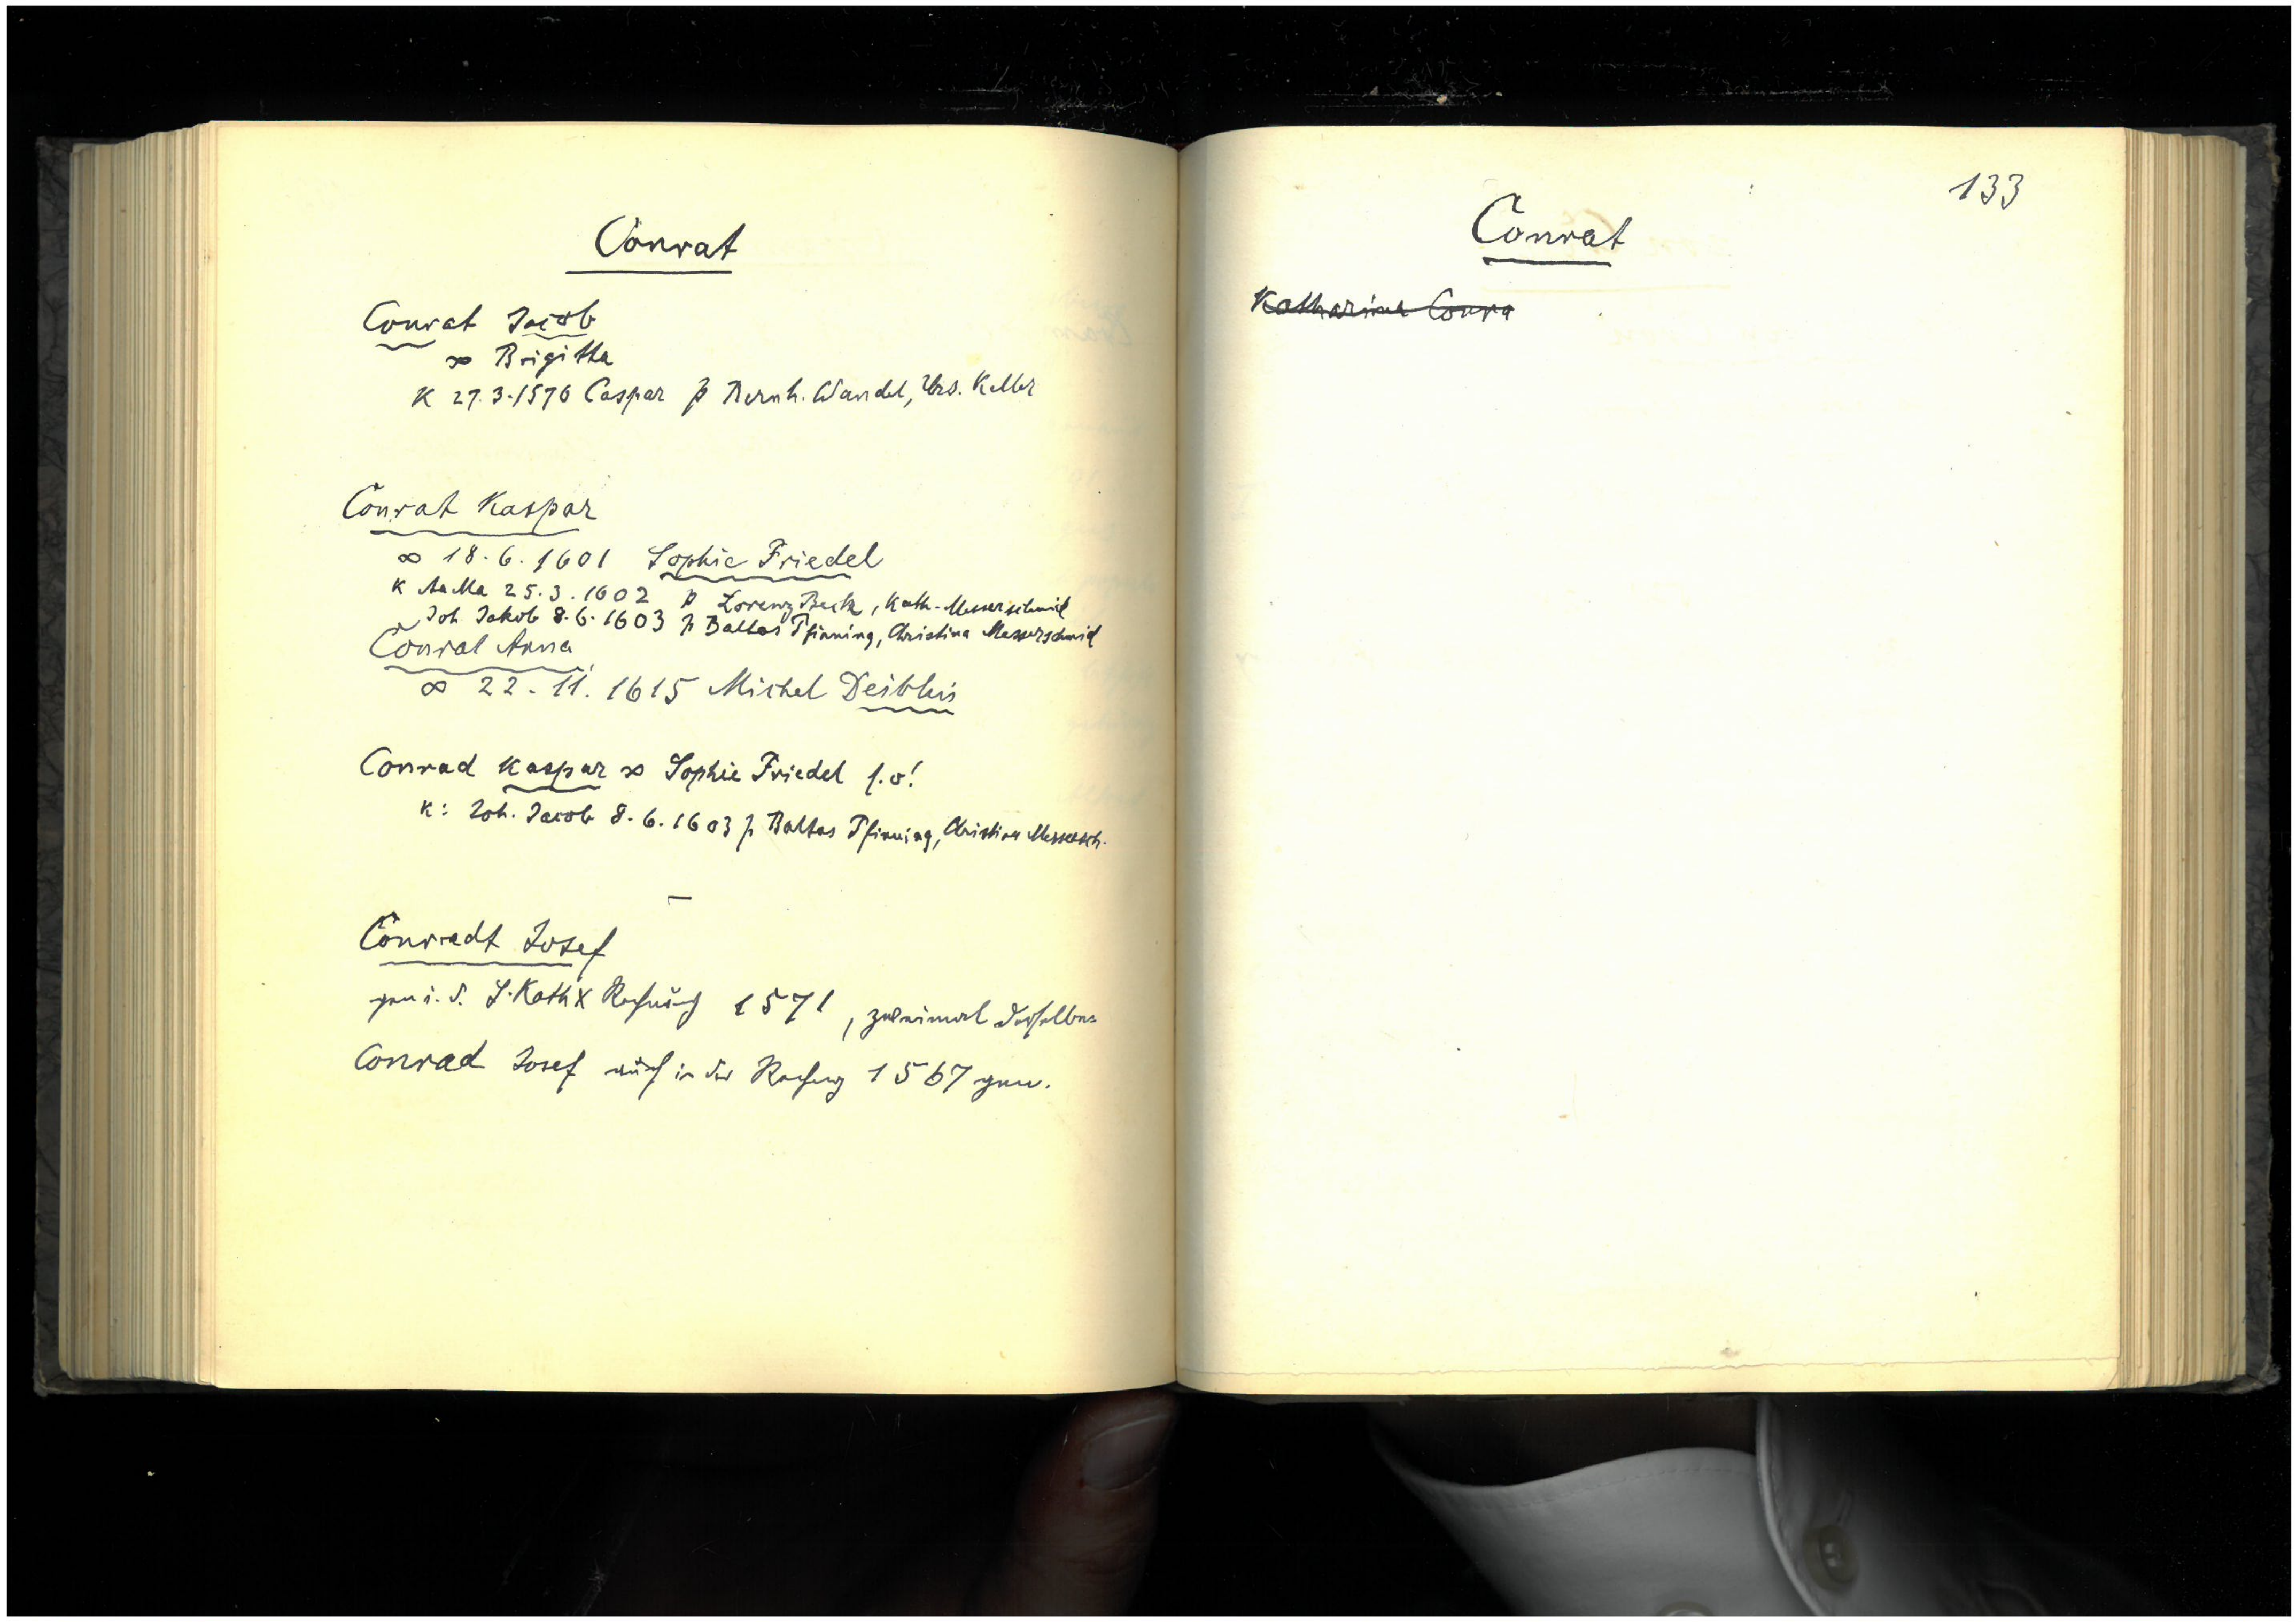 Conrat
Conrat Jacob
∞ Brigitta
K 27.3.1570 Caspar p Bernh. Wandel, Urs. Keller
Conrat Kaspar
∞ 18.6.1601 Sophie Friedel
K 25.3.1602 p Lorenz Beck, Kath. Messerschmid
Joh Jakob 8.6.1603 p Baltas Pfinning, Christina Messerschmid
Conrat Anna
∞ 22.11.1615 Michel
Conrad Kaspar ∞ Sophie Friedel s.o!
K: Joh. Jacob 8.6.1603 p Baltas Pfinning, Christina Messersch.
Conradt Josef
gen i. d. S. Kath Rechnung 1571, zweimal derselbe
Conrad Josef auch in der Rechng 1567 gen.
133
Conrat
Katharina Conra